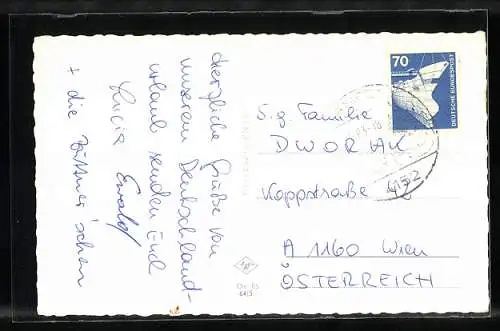 Herzliche Grüße von
unserem Deutschland-
urlaub senden Euch
Lucia Ewald
+ die Büttner'schen
70
DEUTSCHE BUNDESPOST
S.g. Familie
DWORAK
Koppstraße
A 1160 Wien
ÖSTERREICH
4152